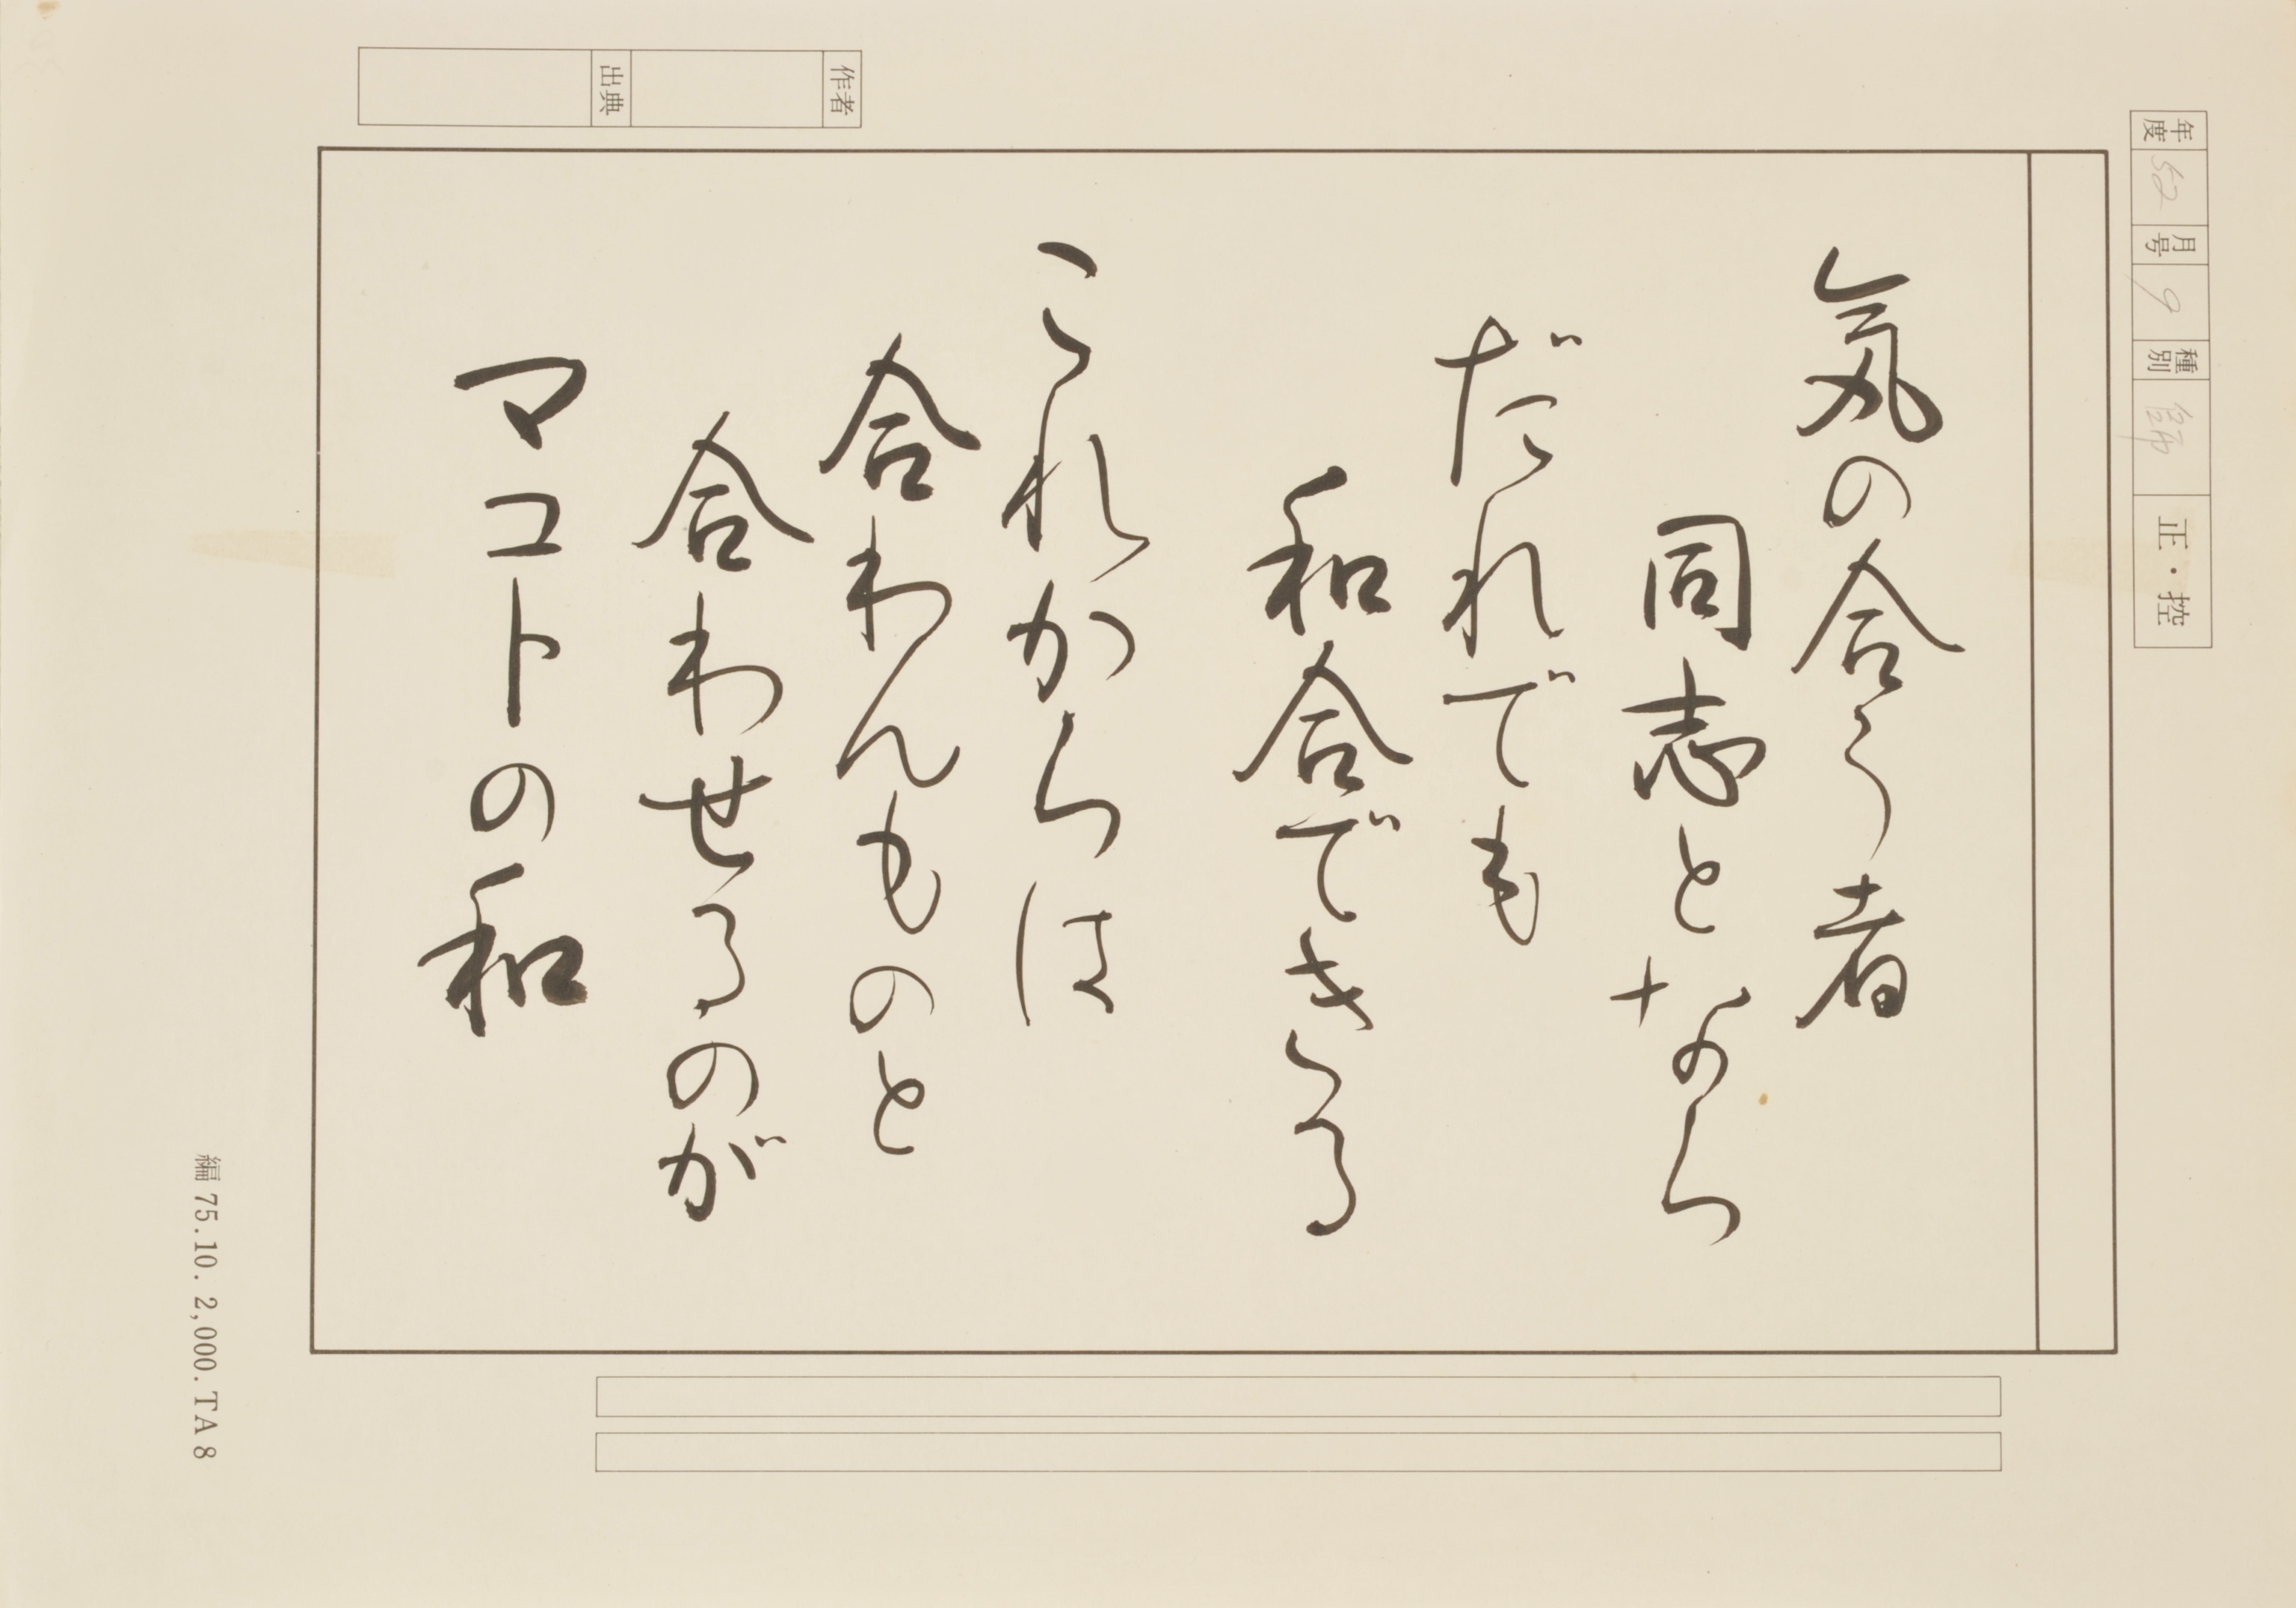 年度 52 月号 9 種別 師 正・控
気の合う者
同志となら
だれでも
和合できる
これからは
合わんものと
合わせるのが
マコトの和
作者
出典
編 75.10. 2,000. TA 8